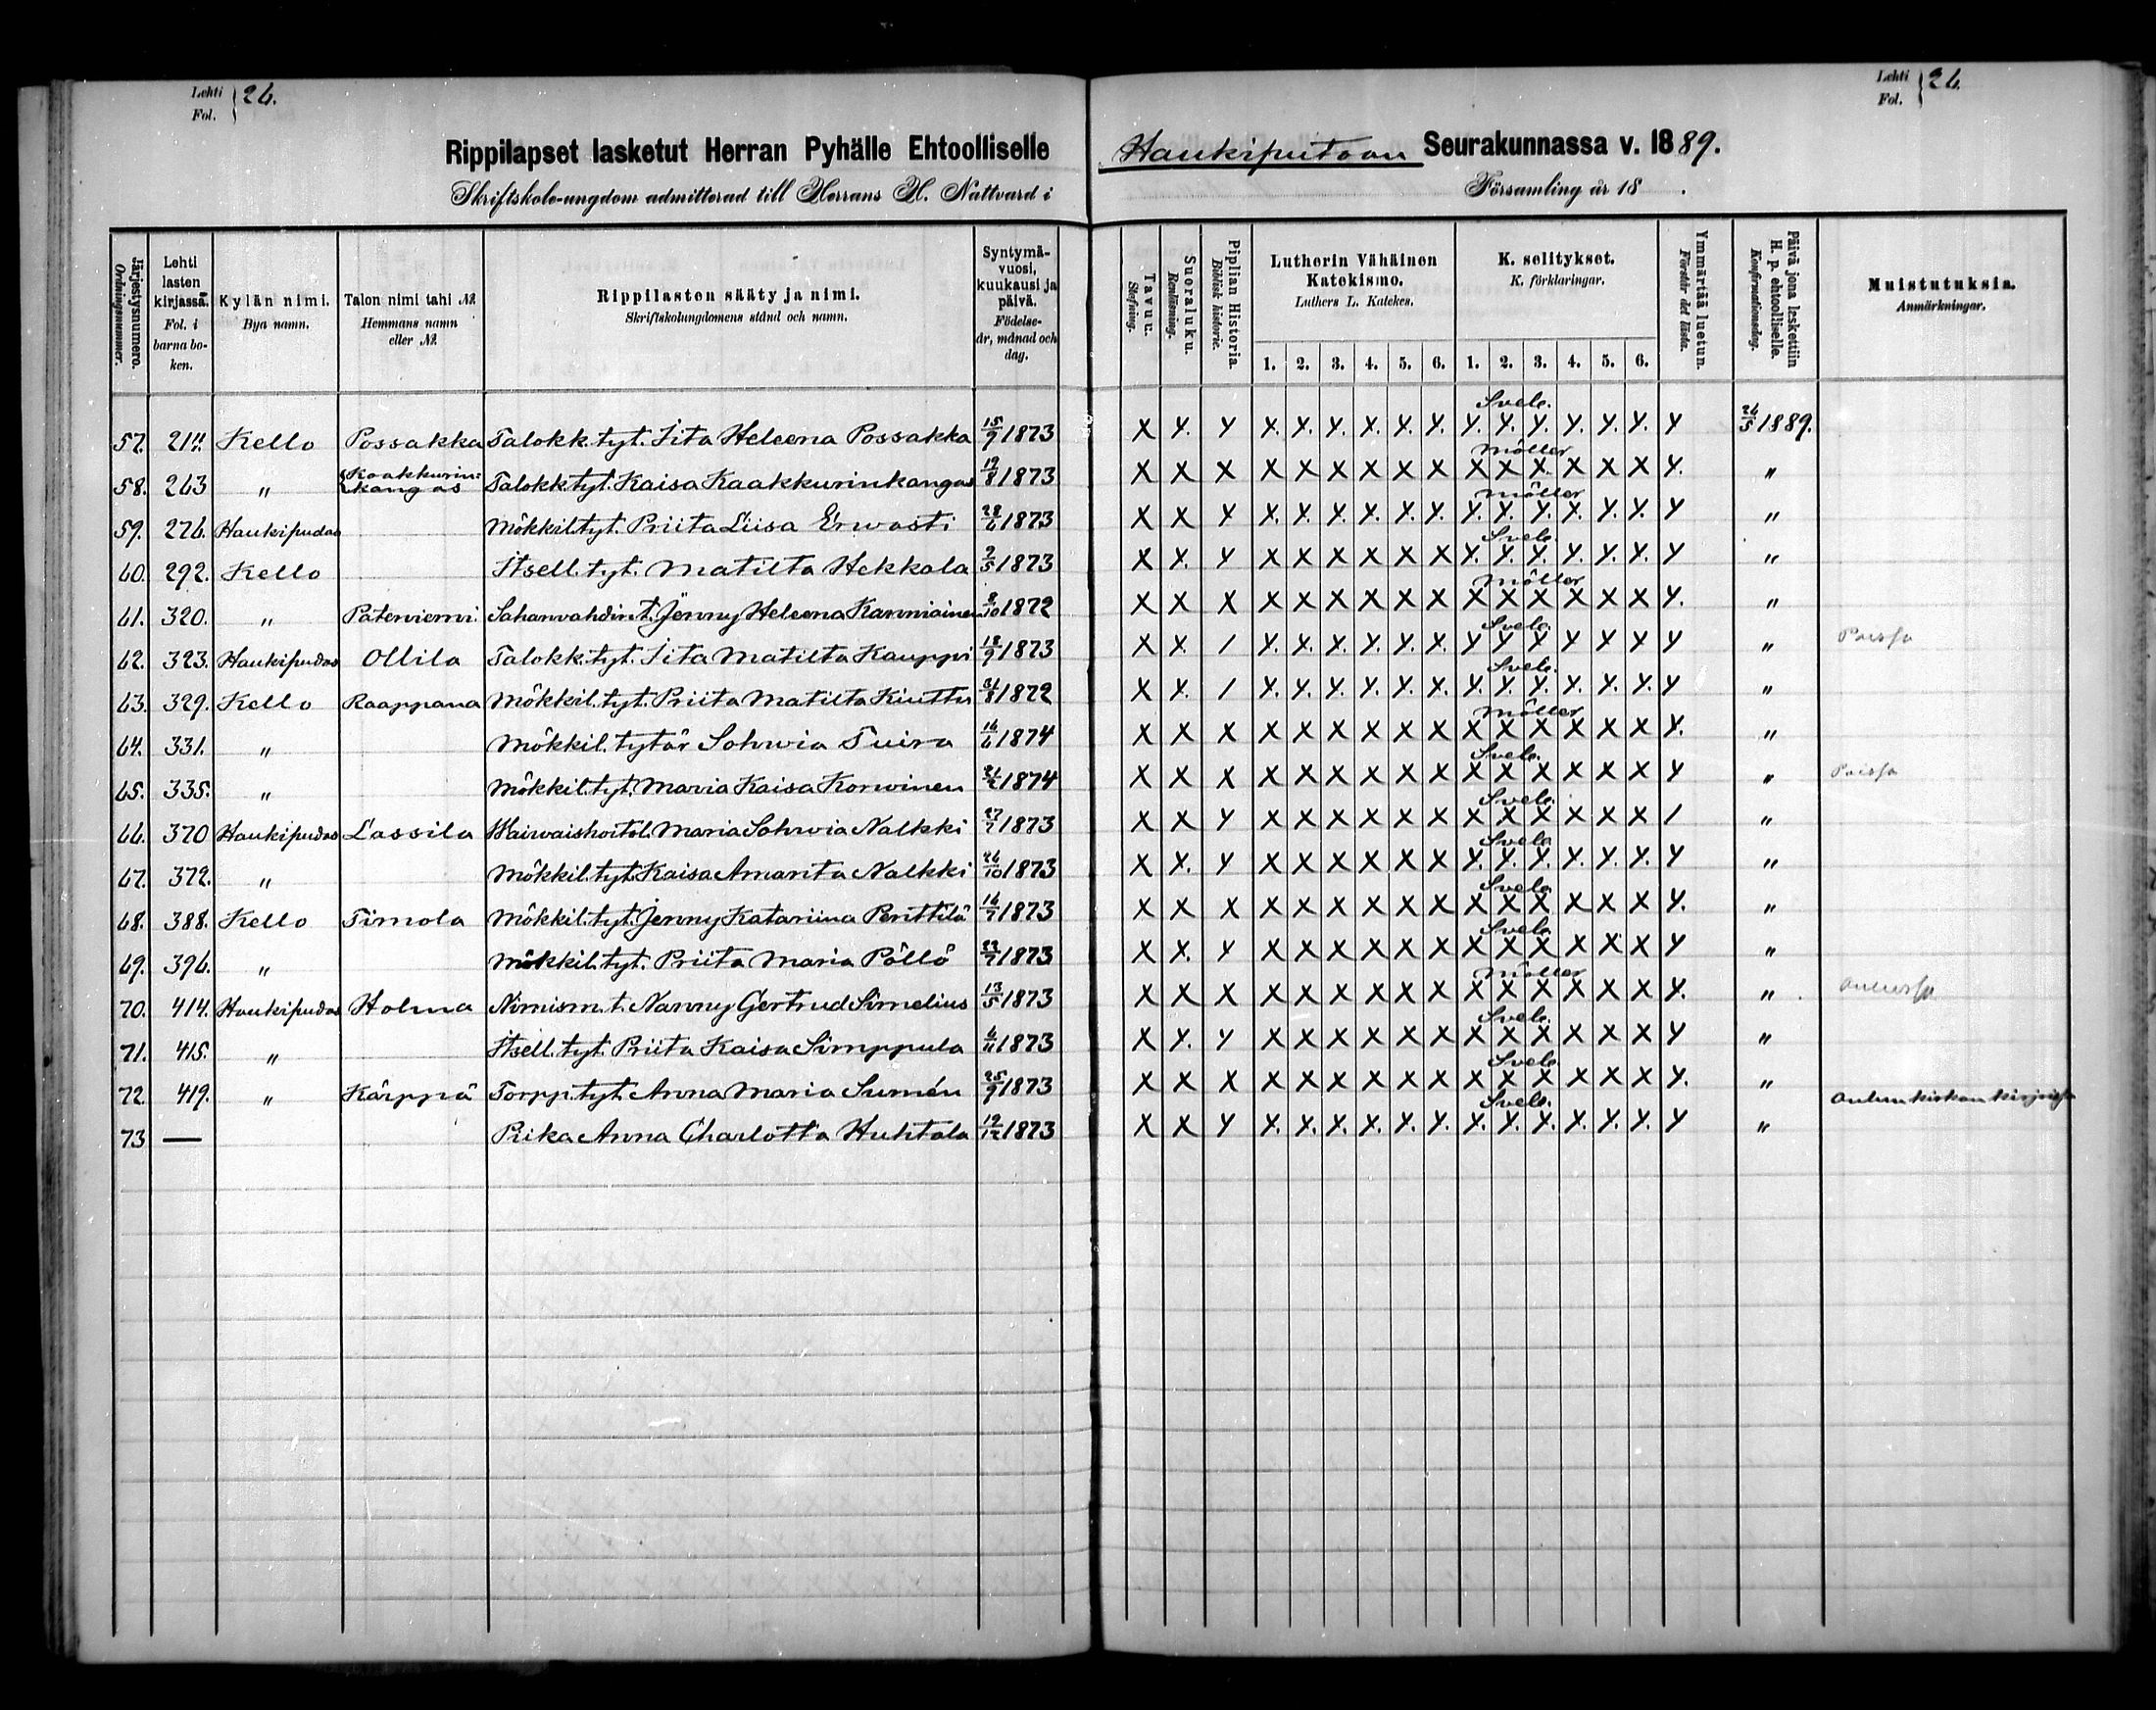 Lehti Fol. } 26.
Lehti Fol. } 26.
Rippilapset lasketut Herran Pyhälle Ehtoolliselle Haukiputaan Seurakunnassa v. 1889.
Skriftskole-ungdom admitterad till Herrans H. Nattvard i Församling år 18 .
Järjestysnumero. Ordningsnummer.
Lehti lasten kirjassa. Fol. i barnaboken.
Kylän nimi. Bya namn.
Talon nimi tahi №. Hemmans namn eller №.
Rippilasten sääty ja nimi. Skriftskolungdomens stånd och namn.
Syntymävuosi, kuukausi ja päivä. Födelseår, månad och dag.
Tavuu. Stafning.
Suoraluku. Renläsning.
Piplian Historia. Biblisk historie.
Lutherin Vähäinen Katekismo. Luthers L. Katekes. 1. 2. 3. 4. 5. 6.
K. selitykset. K. förklaringar. 1. 2. 3. 4. 5. 6.
Ymmärtää luetun. Förstår det lästa.
Päivä jona laskettiin H. p. ehtoolliselle. Konfirmationsdag.
Muistutuksia. Anmärkningar.
57. 211. Kello Possakka Talokk. tyt. Iita Heleena Possakka 15/9 1873 X Y. Y X. Y. Y. Y. Y. Y. Sveb. Y. Y. Y. Y. Y. Y. Y 26/5 1889.
58. 263 " Kaakkurinkangas Talokk. tyt. Kaisa Kaakkurinkangas 19/8 1873 X X X X X X X X X Möller X X X X X X Y. "
59. 276. Haukipudas Mökkil. tyt. Priita Liisa Erwasti 28/6 1873 X X Y X. Y. Y. Y. Y. Y. Möller Y. Y. Y. Y. Y. Y. Y "
60. 292. Kello Itsell. tyt. Matilta Hekkala 2/5 1873 X X. Y X X X X X X Sveb. Y. Y. Y. Y. Y. Y. Y "
61. 320. " Pateniemi Sahanvahdin t. Jenny Heleena Kanniainen 8/10 1872 X X X X X X X X X Möller X X X X X X Y. "
62. 323. Haukipudas Ollila Talokk. tyt. Iita Matilta Kauppi 18/9 1873 X X. / Y. Y. Y. Y. Y. X Sveb. Y Y Y Y Y Y Y " Poissa
63. 329. Kello Raappana Mökkil. tyt. Priita Matilta Kiuttu 31/8 1872 X X. / Y. Y. Y. Y. Y. X. Sveb. Y. Y. Y. Y. Y. Y. Y "
64. 331. " Mökkil. tytär Sohwia Tuira 16/6 1874 X X X X X X X X X Möller X X X X X X Y. "
65. 335. " Mökkil. tyt. Maria Kaisa Korwinen 21/2 1874 X X X X X X X X X Sveb. X X X X X X Y " Poissa
66. 370 Haukipudas Lassila Waiwaishoitol. Maria Sohwia Nalkki 27/7 1873 X X Y X X X X X X Sveb. X X X X X X / "
67. 372. " Mökkil. tyt. Kaisa Amanta Nalkki 26/10 1873 X X. Y X X X X X X Sveb. Y. Y. Y. Y. Y. Y. Y "
68. 388. Kello Timola Mökkil. tyt. Jenny Katariina Penttilä 16/7 1873 X X X X X X X X X Sveb. X X X X X X Y. "
69. 396. " Mökkil. tyt. Priita Maria Pöllö 23/7 1873 X X. Y X X X X X X Sveb. X X X X X X Y "
70. 414. Haukipudas Holma Nimism. t. Nanny Gertrud Simelius 13/5 1873 X X X X X X X X X Möller X X X X X X Y. " Oulussa
71. 415. " Itsell. tyt. Priita Kaisa Simppula 6/11 1873 X Y. Y X X X X X X Sveb. X X X X X X Y "
72. 419. " Kärppä Torpp. tyt. Anna Maria Sumén 25/9 1873 X X X X X X X X X Sveb. X X X X X X Y. "
73 — Piika Anna Charlotta Huhtala 19/12 1873 X X Y X. X. Y. Y. Y. Y. Sveb. Y. Y. Y. Y. Y. Y. Y " Oulun kirkon kirjoissa